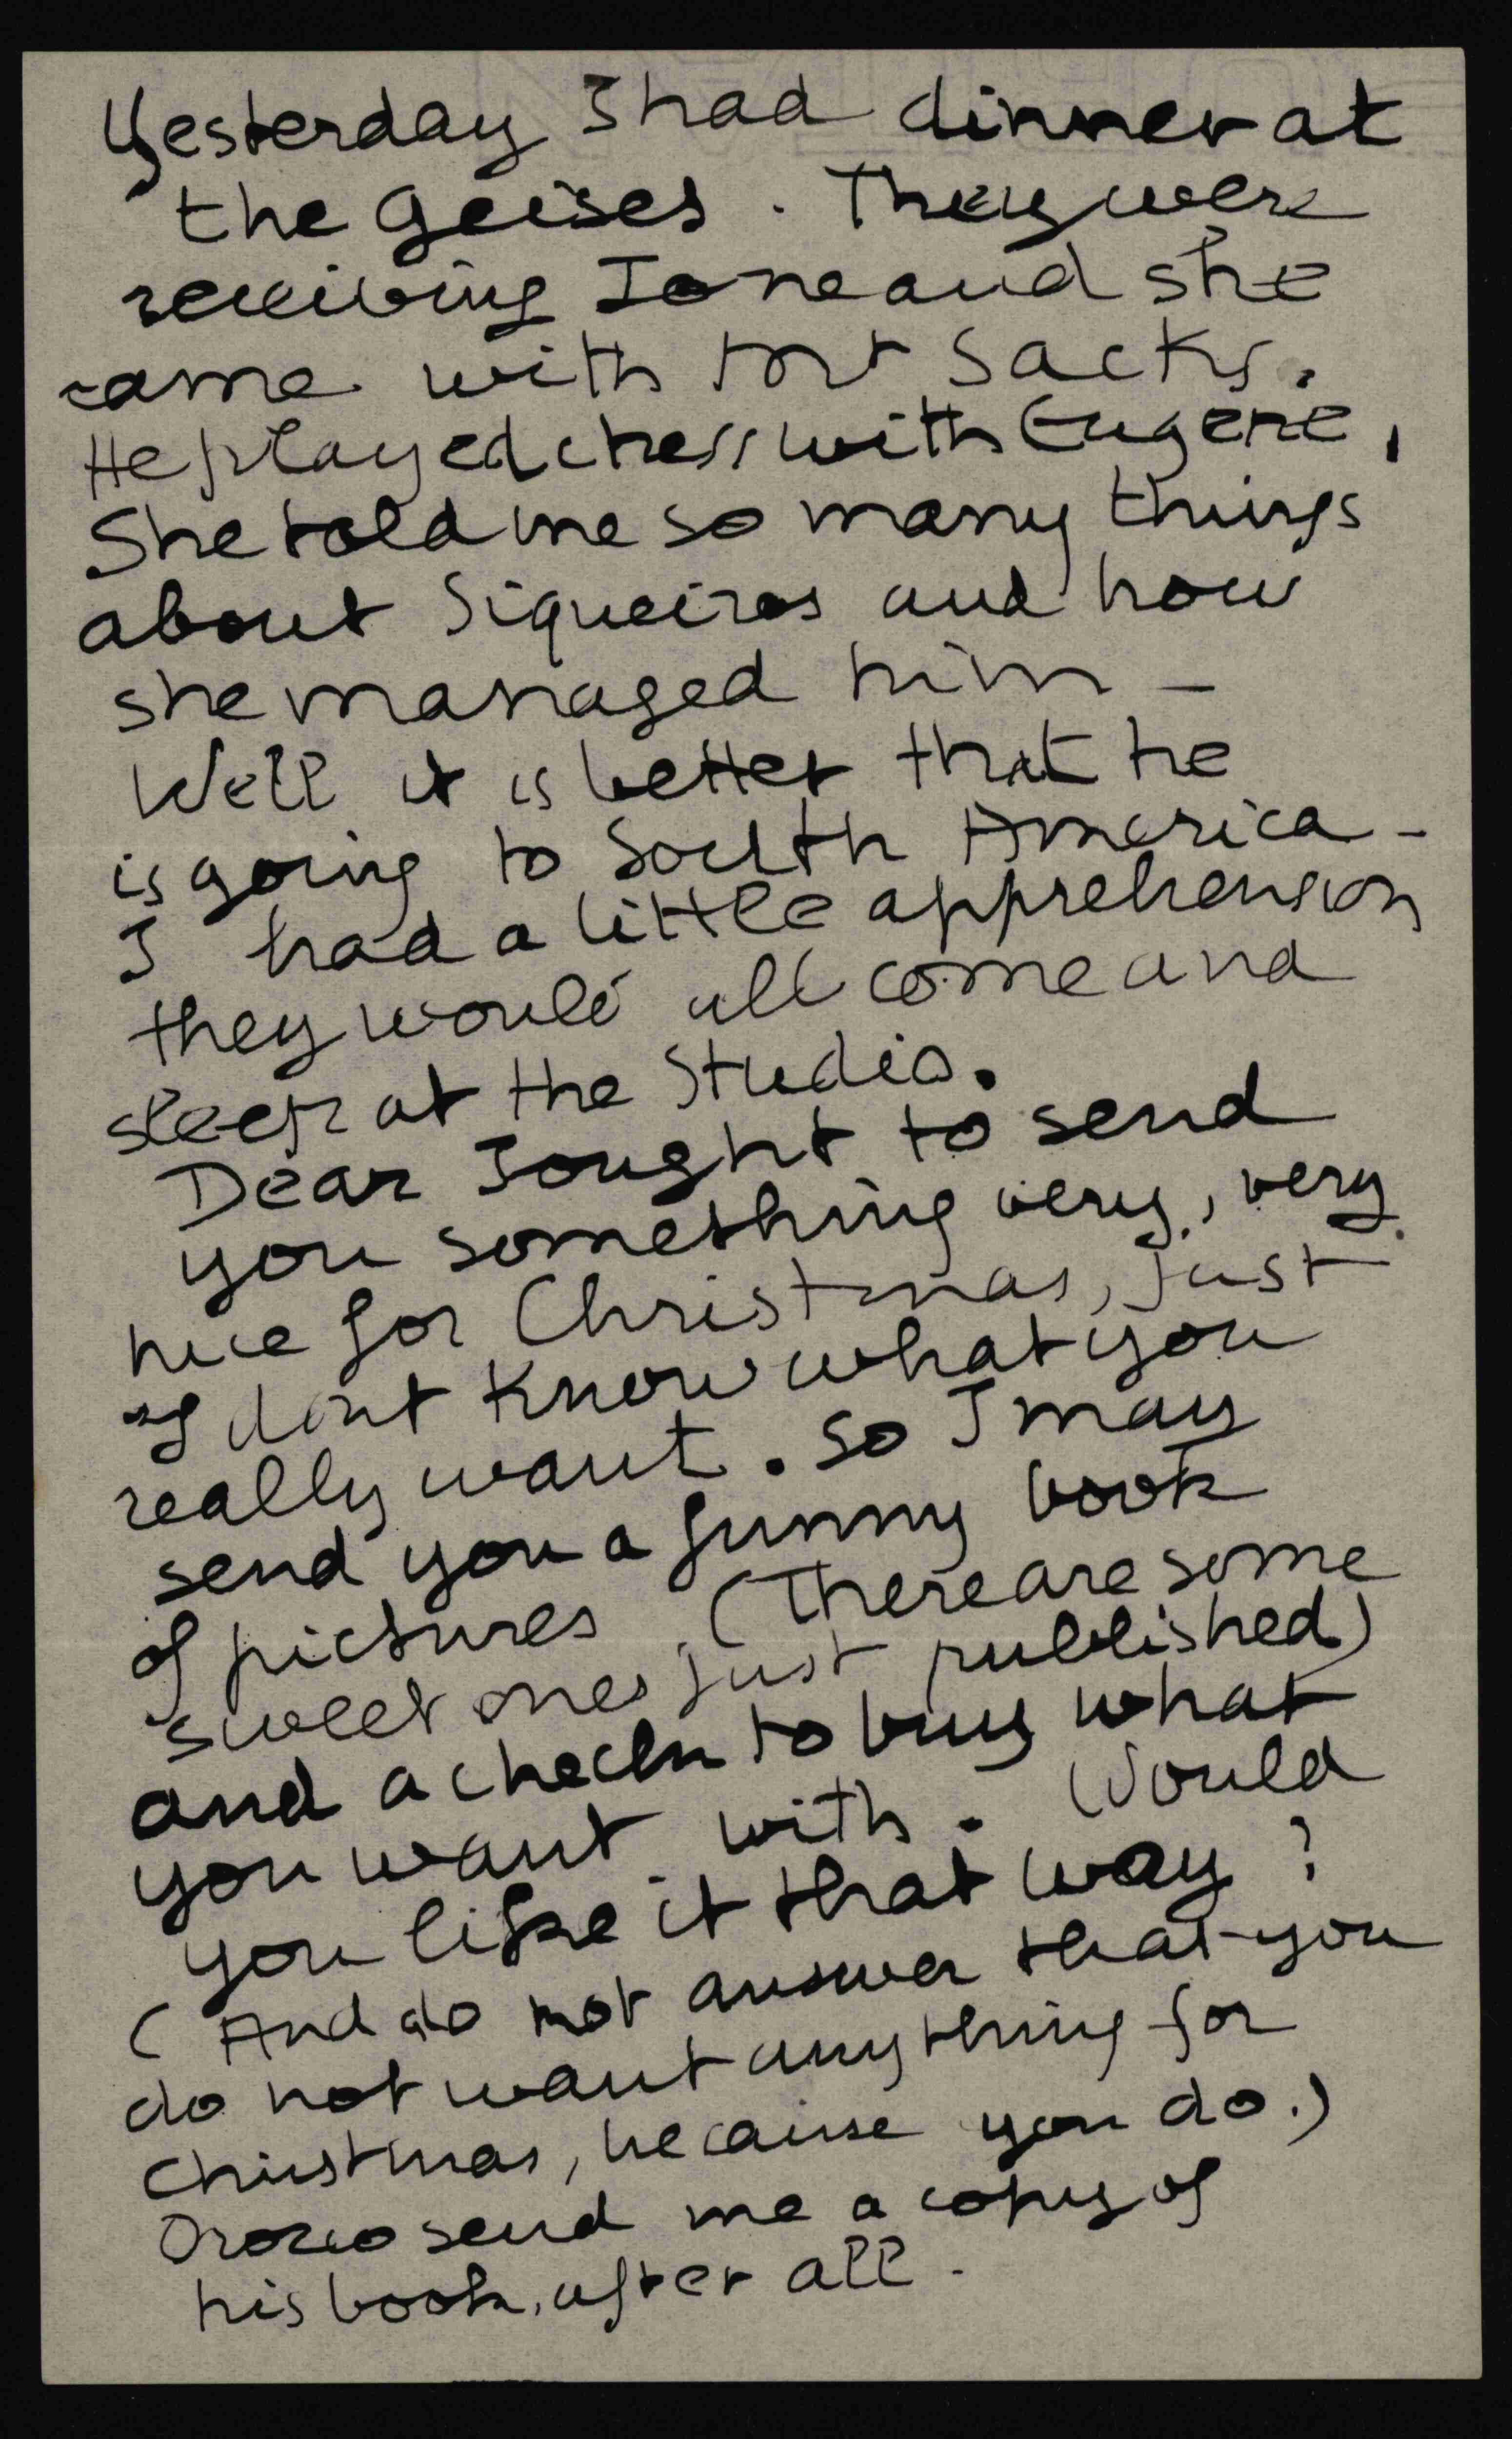 Yesterday I had dinner at
the Geises. They were
receiving Ione and she
came with Sacks.
He played chess with Eugene,
She told me so many things
about Siqueiros and how
she managed him –
Well it is better that he
is going to South America –
I had a little apprehension
they would all come and
sleep at the Studio.
Dear I ought to send
you something very, very
nice for Christmas, just
I dont know what you
really want. So I may
send you a funny book
of pictures. (There are some
sweet ones just published)
and a check to buy what
you want with. Would
you like it that way?
(And do not answer that you
do not want anything for
Christmas, because you do.)
Orozco send me a copy of
his book, after all.